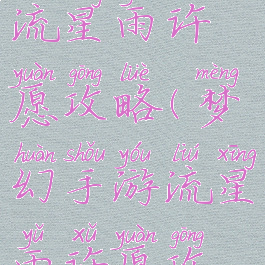 流星雨许
yuàn gōng lüè mèng
愿攻略(梦
huàn shǒu yóu liú xīng
幻手游流星
yǔ xǔ yuàn gōng
雨许愿攻